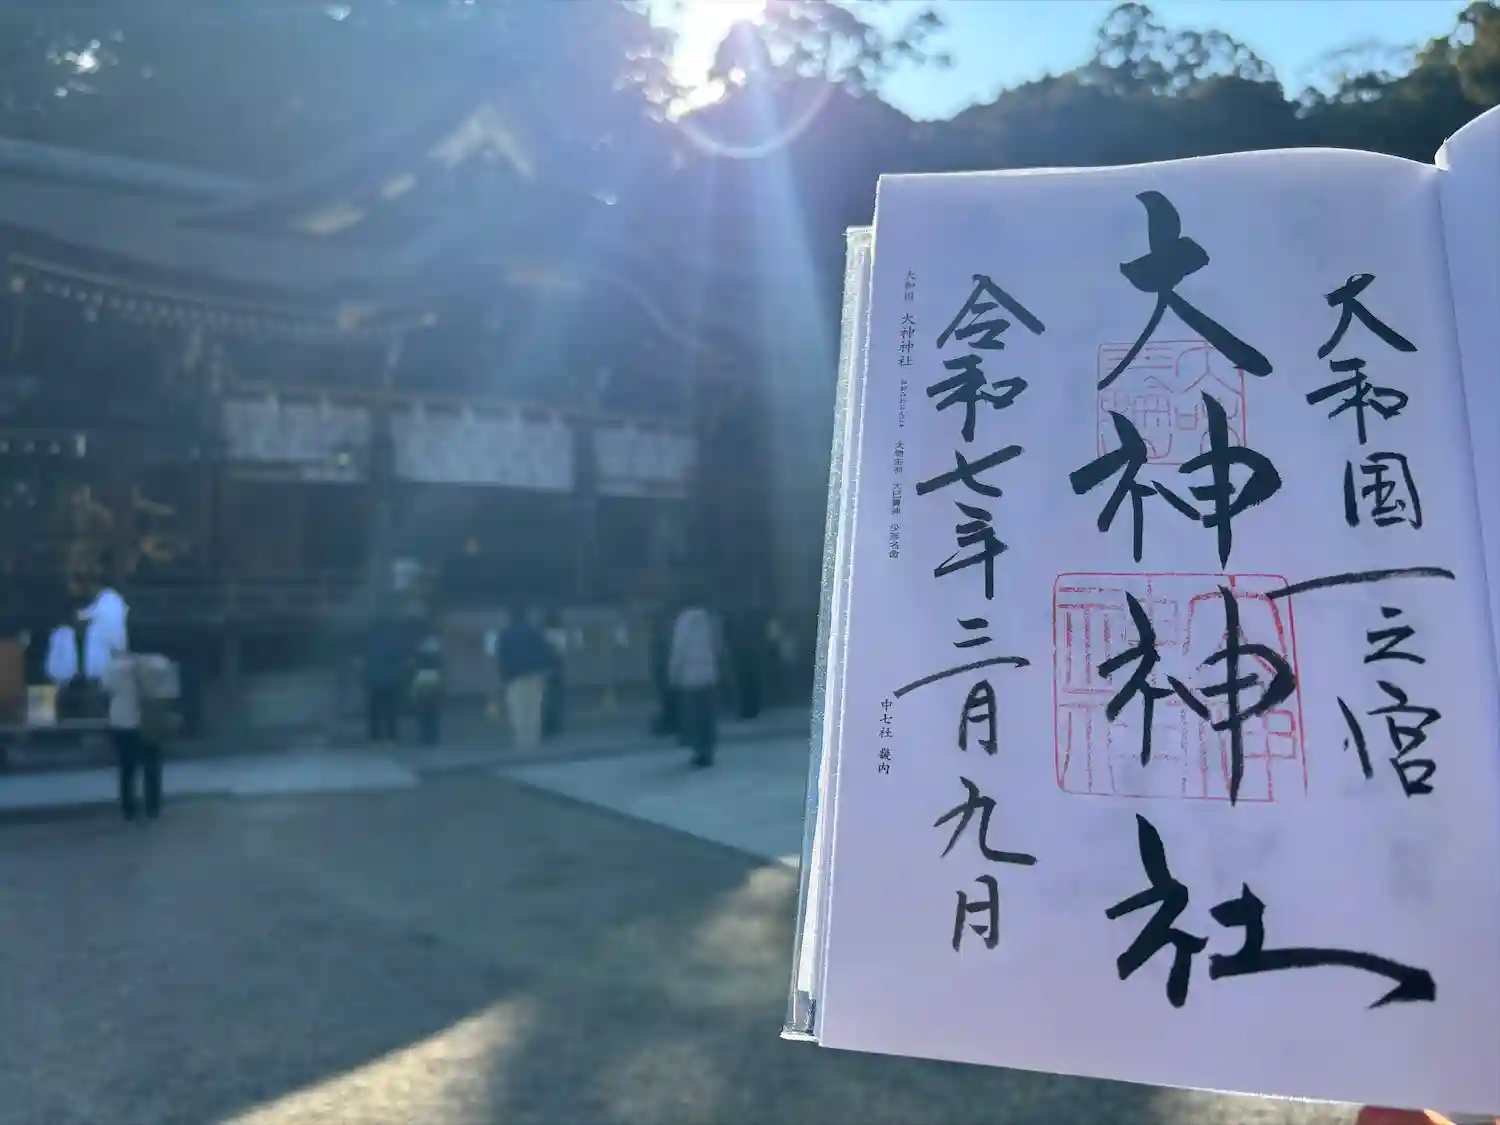 大和国一之宮
大神神社
令和七年三月九日
大和国 大神神社 おおみわじんじゃ 大物主神 大己貴神 少彦名命
中七社 畿内